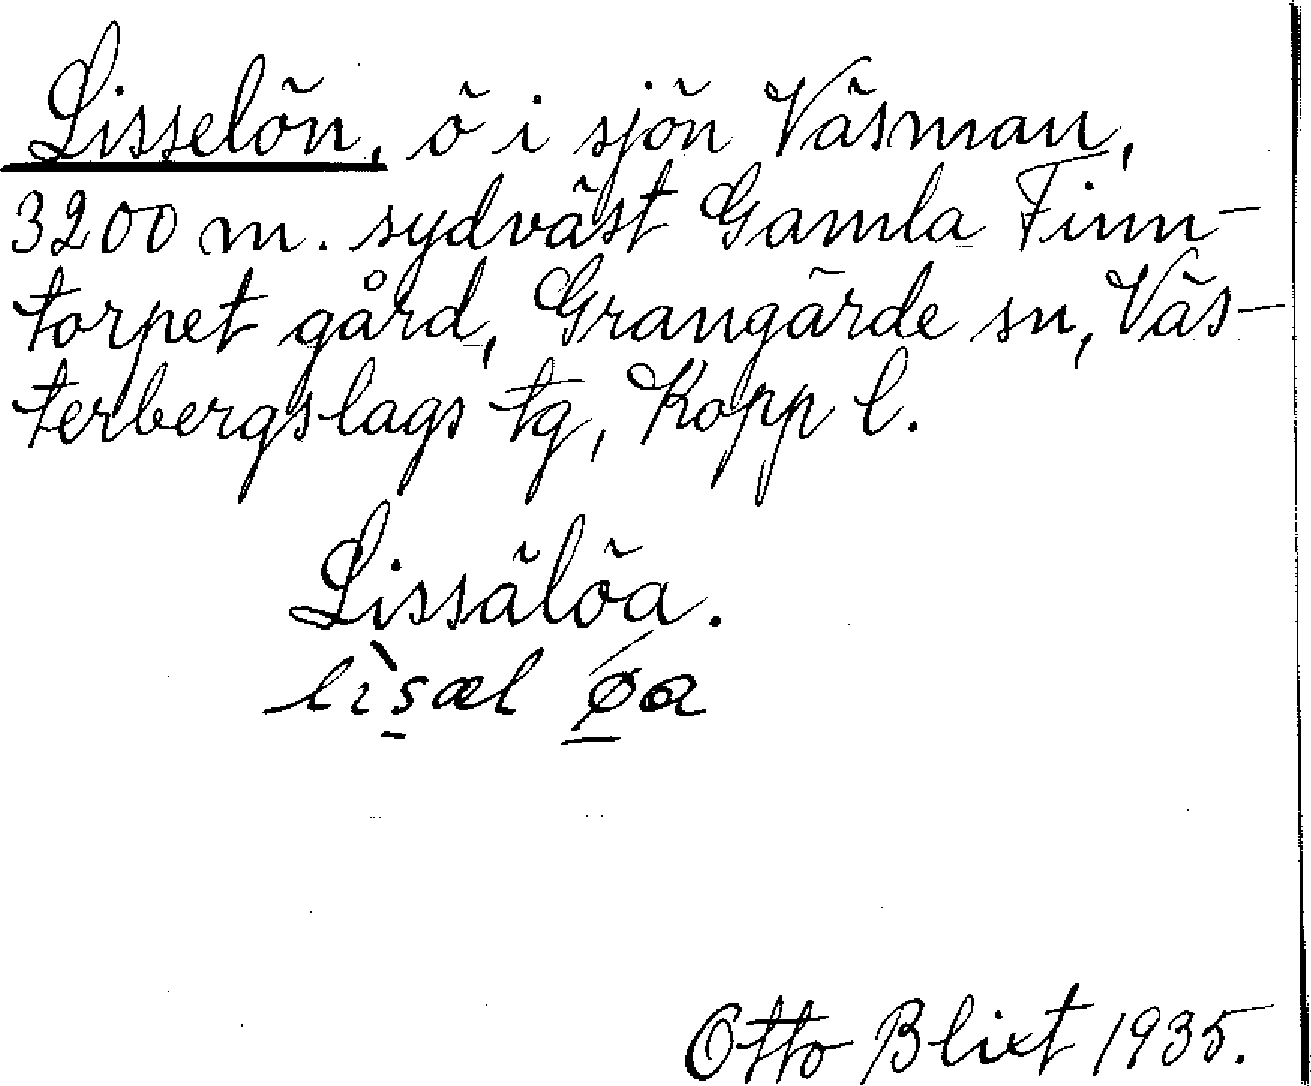 Lisselön, ö i sjön Väsman,
3200 m. sydväst Gamla Finn-
torpet gård, Grangärde sn, Väs-
terbergslags tg, Kopp l.
Lissälöa.
lìsæl øa
Otto Blixt 1935.